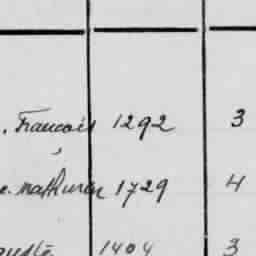 . François 1292 3
e. Mathurin 1729 4
guste 1404 3